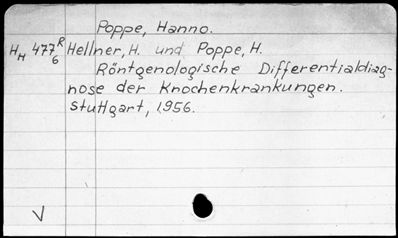 Poppe, Hanno.
HH 477 R/6 Hellner, H. und Poppe, H.
Röntgenologische Differentialdiag-
nose der Knochenkrankungen.
Stuttgart, 1956.
V